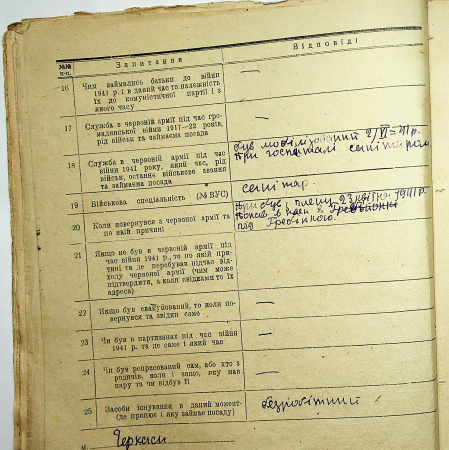 №№ п.п.
Запитання
Відповіді
16
Чим займались батьки до війни
1941 р. і в даний час та належність
їх до комуністичної партії і з
якого часу
—
17
Служба в червоній армії під час гро-
мадянської війни 1917—22 років,
рід військ та займаєма посада
—
18
Служба в червоній армії під час
війни 1941 року, який час, рід
військ, останнє військове звання
та займаєма посада
був мобілізований 2/VI-41 р.
при госпиталі санітаром
19
Військова спеціальність (№ ВУС)
санітар
20
Коли повернувся з червоної армії та
по якій причині
Прибув з плену 23 квітня 1941 р.
попав в плен
під Гребінкою.
21
Якщо не був в червоній армії під
час війни 1941 р., то по якій при-
чині та де перебував підчас від-
ходу червоної армії (чим може
підтвердити, а коли свідками то їх
адреса)
22
Якщо був евакуйований, то коли по-
вернувся та звідки саме
—
23
Чи був в партизанах під час війни
1941 р. та де саме і який час
—
24
Чи був репресований сам, або хто з
родичів, коли і защо, яку мав
кару та чи відбув її
—
25
Засоби існування в даний момент-
(де працює і яку займає посаду)
безробітний
м. Черкаси